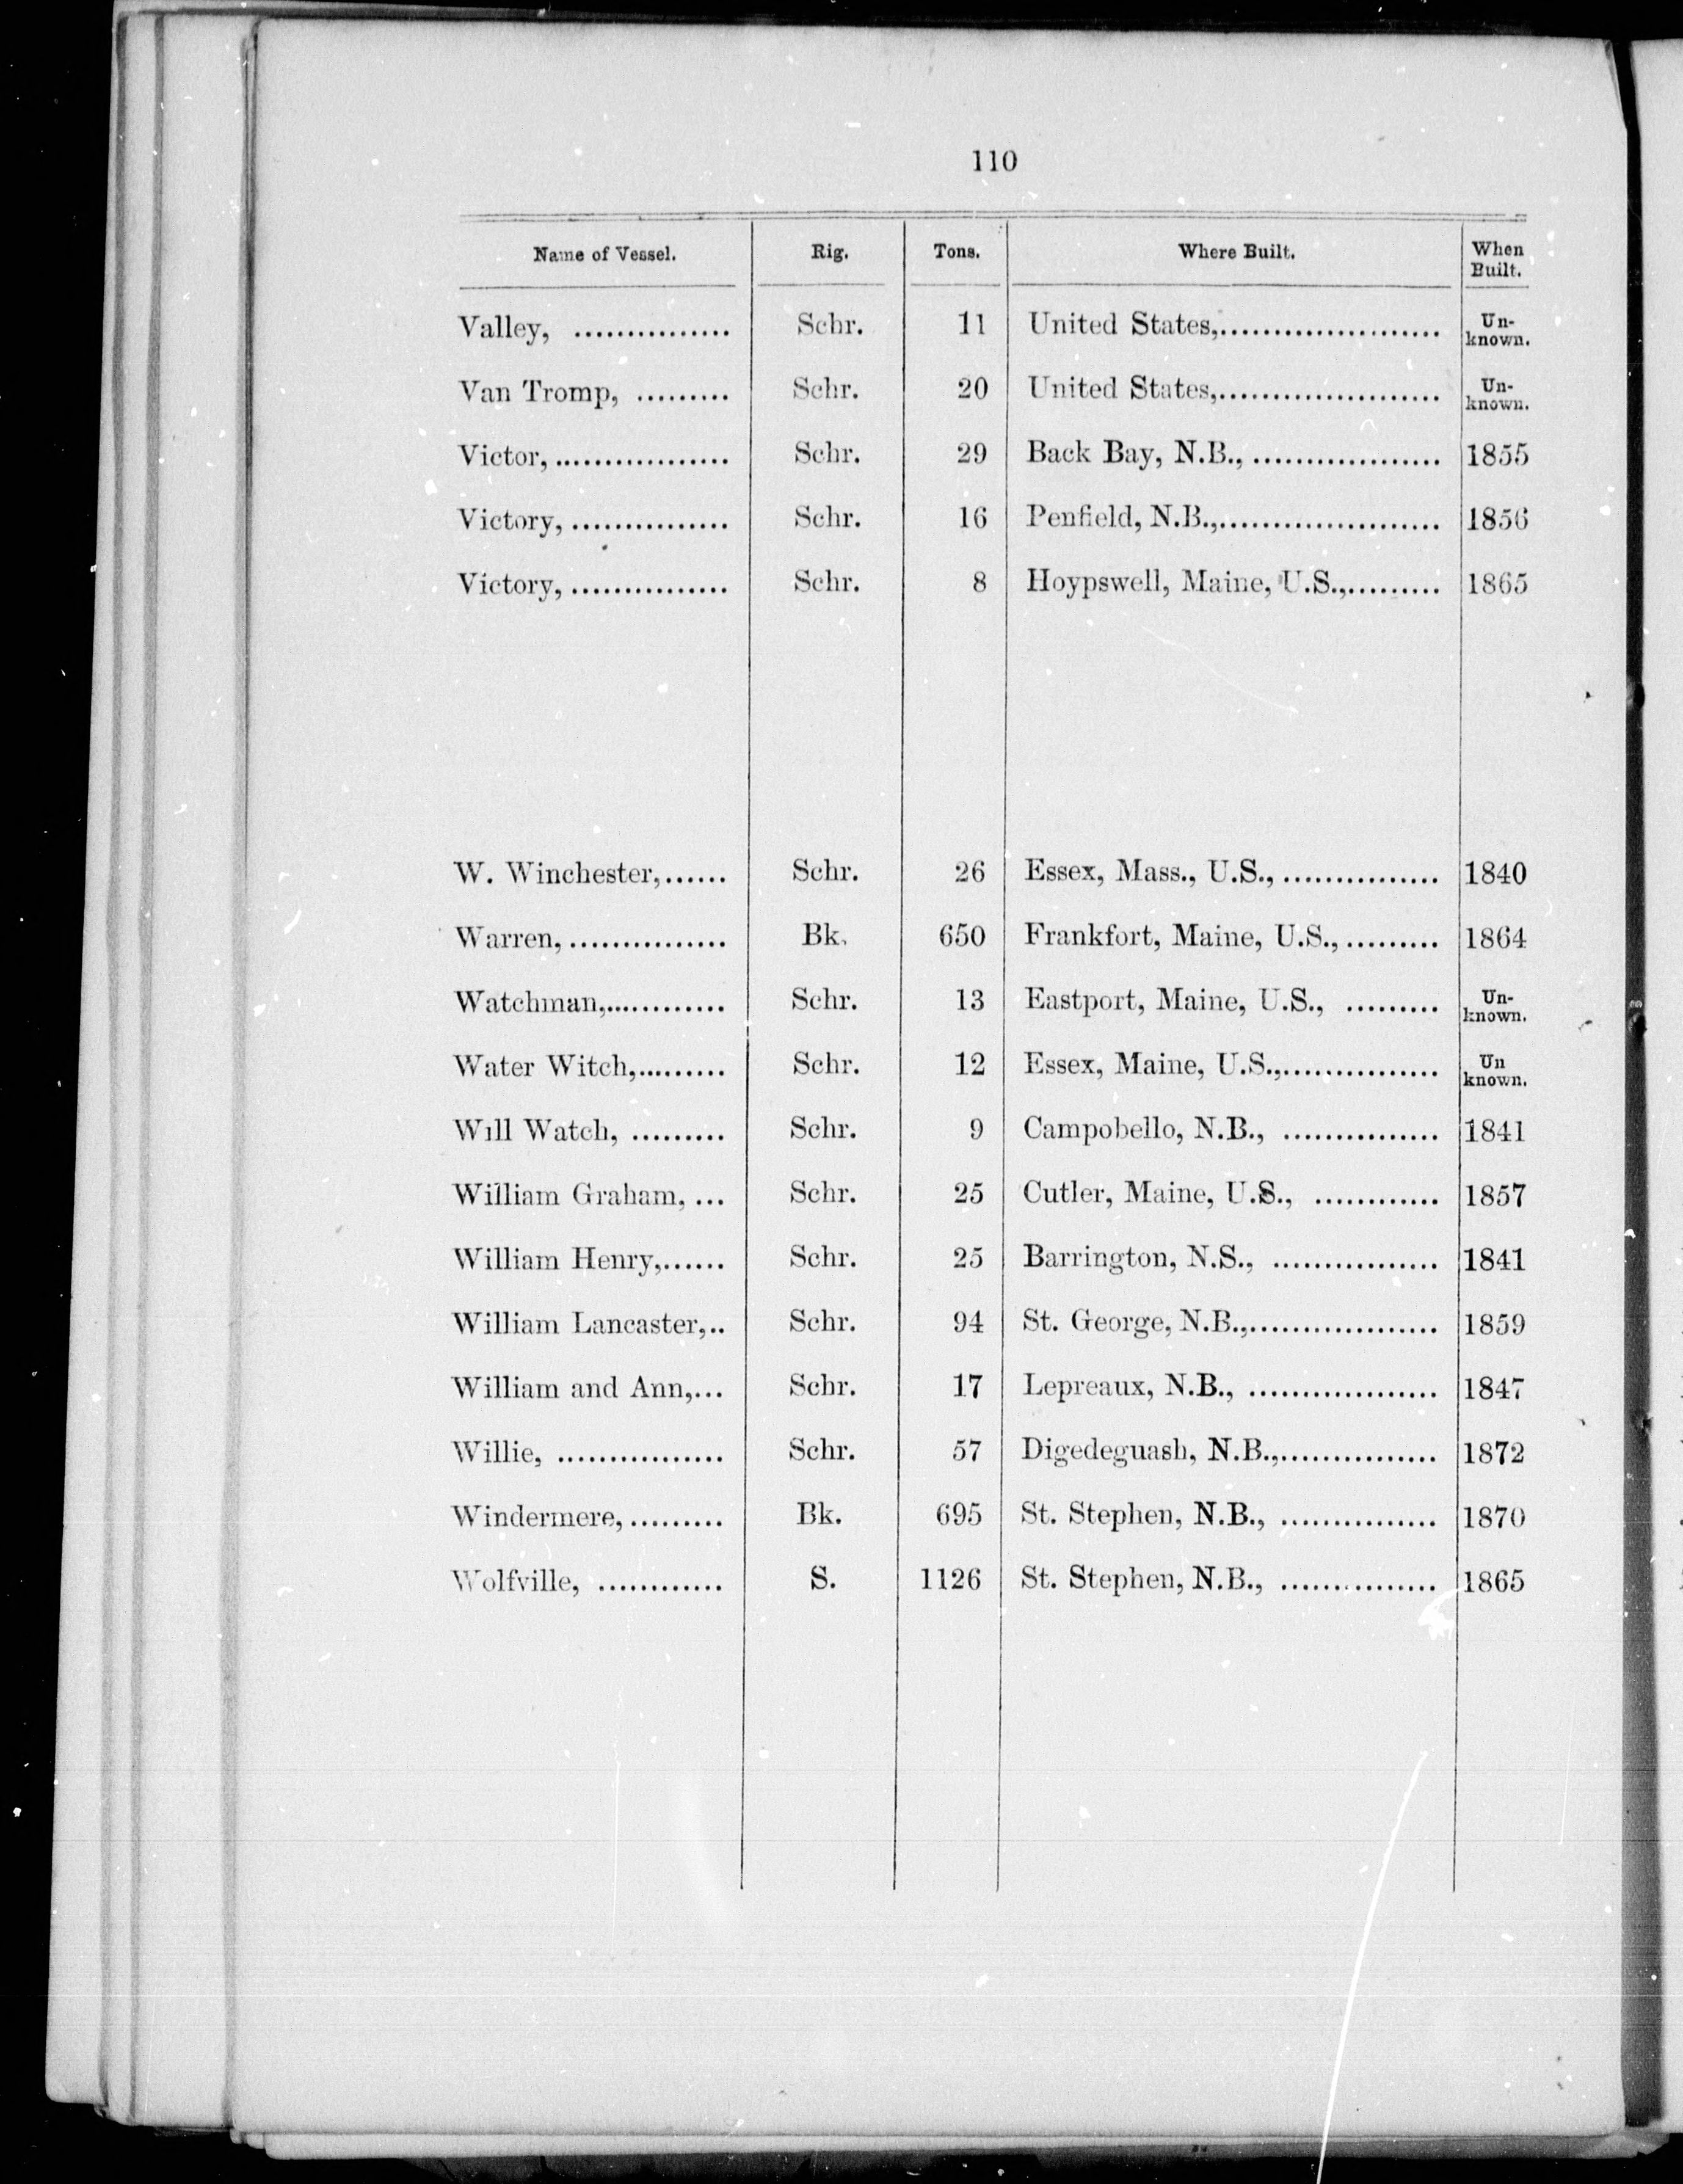 110
Name of Vessel. Rig. Tons. Where Built. When Built.
Valley, ............... Schr. 11 United States,...................... Un-known.
Van Tromp, ......... Schr. 20 United States,...................... Un-known.
Victor,................. Schr. 29 Back Bay, N.B., ................... 1855
Victory, ............... Schr. 16 Penfield, N.B.,...................... 1856
Victory, ............... Schr. 8 Hoypswell, Maine, U.S.,......... 1865
W. Winchester,...... Schr. 26 Essex, Mass., U.S., ............... 1840
Warren, ............... Bk. 650 Frankfort, Maine, U.S., ......... 1864
Watchman,............ Schr. 13 Eastport, Maine, U.S., ......... Un-known.
Water Witch,......... Schr. 12 Essex, Maine, U.S.,............... Un known.
Will Watch, ......... Schr. 9 Campobello, N.B., ............... 1841
William Graham, ... Schr. 25 Cutler, Maine, U.S., ............ 1857
William Henry,...... Schr. 25 Barrington, N.S., ................ 1841
William Lancaster,.. Schr. 94 St. George, N.B.,................... 1859
William and Ann,... Schr. 17 Lepreaux, N.B., ................... 1847
Willie, ................ Schr. 57 Digedeguash, N.B.,............... 1872
Windermere, ......... Bk. 695 St. Stephen, N.B., ............... 1870
Wolfville, ............ S. 1126 St. Stephen, N.B., ............... 1865